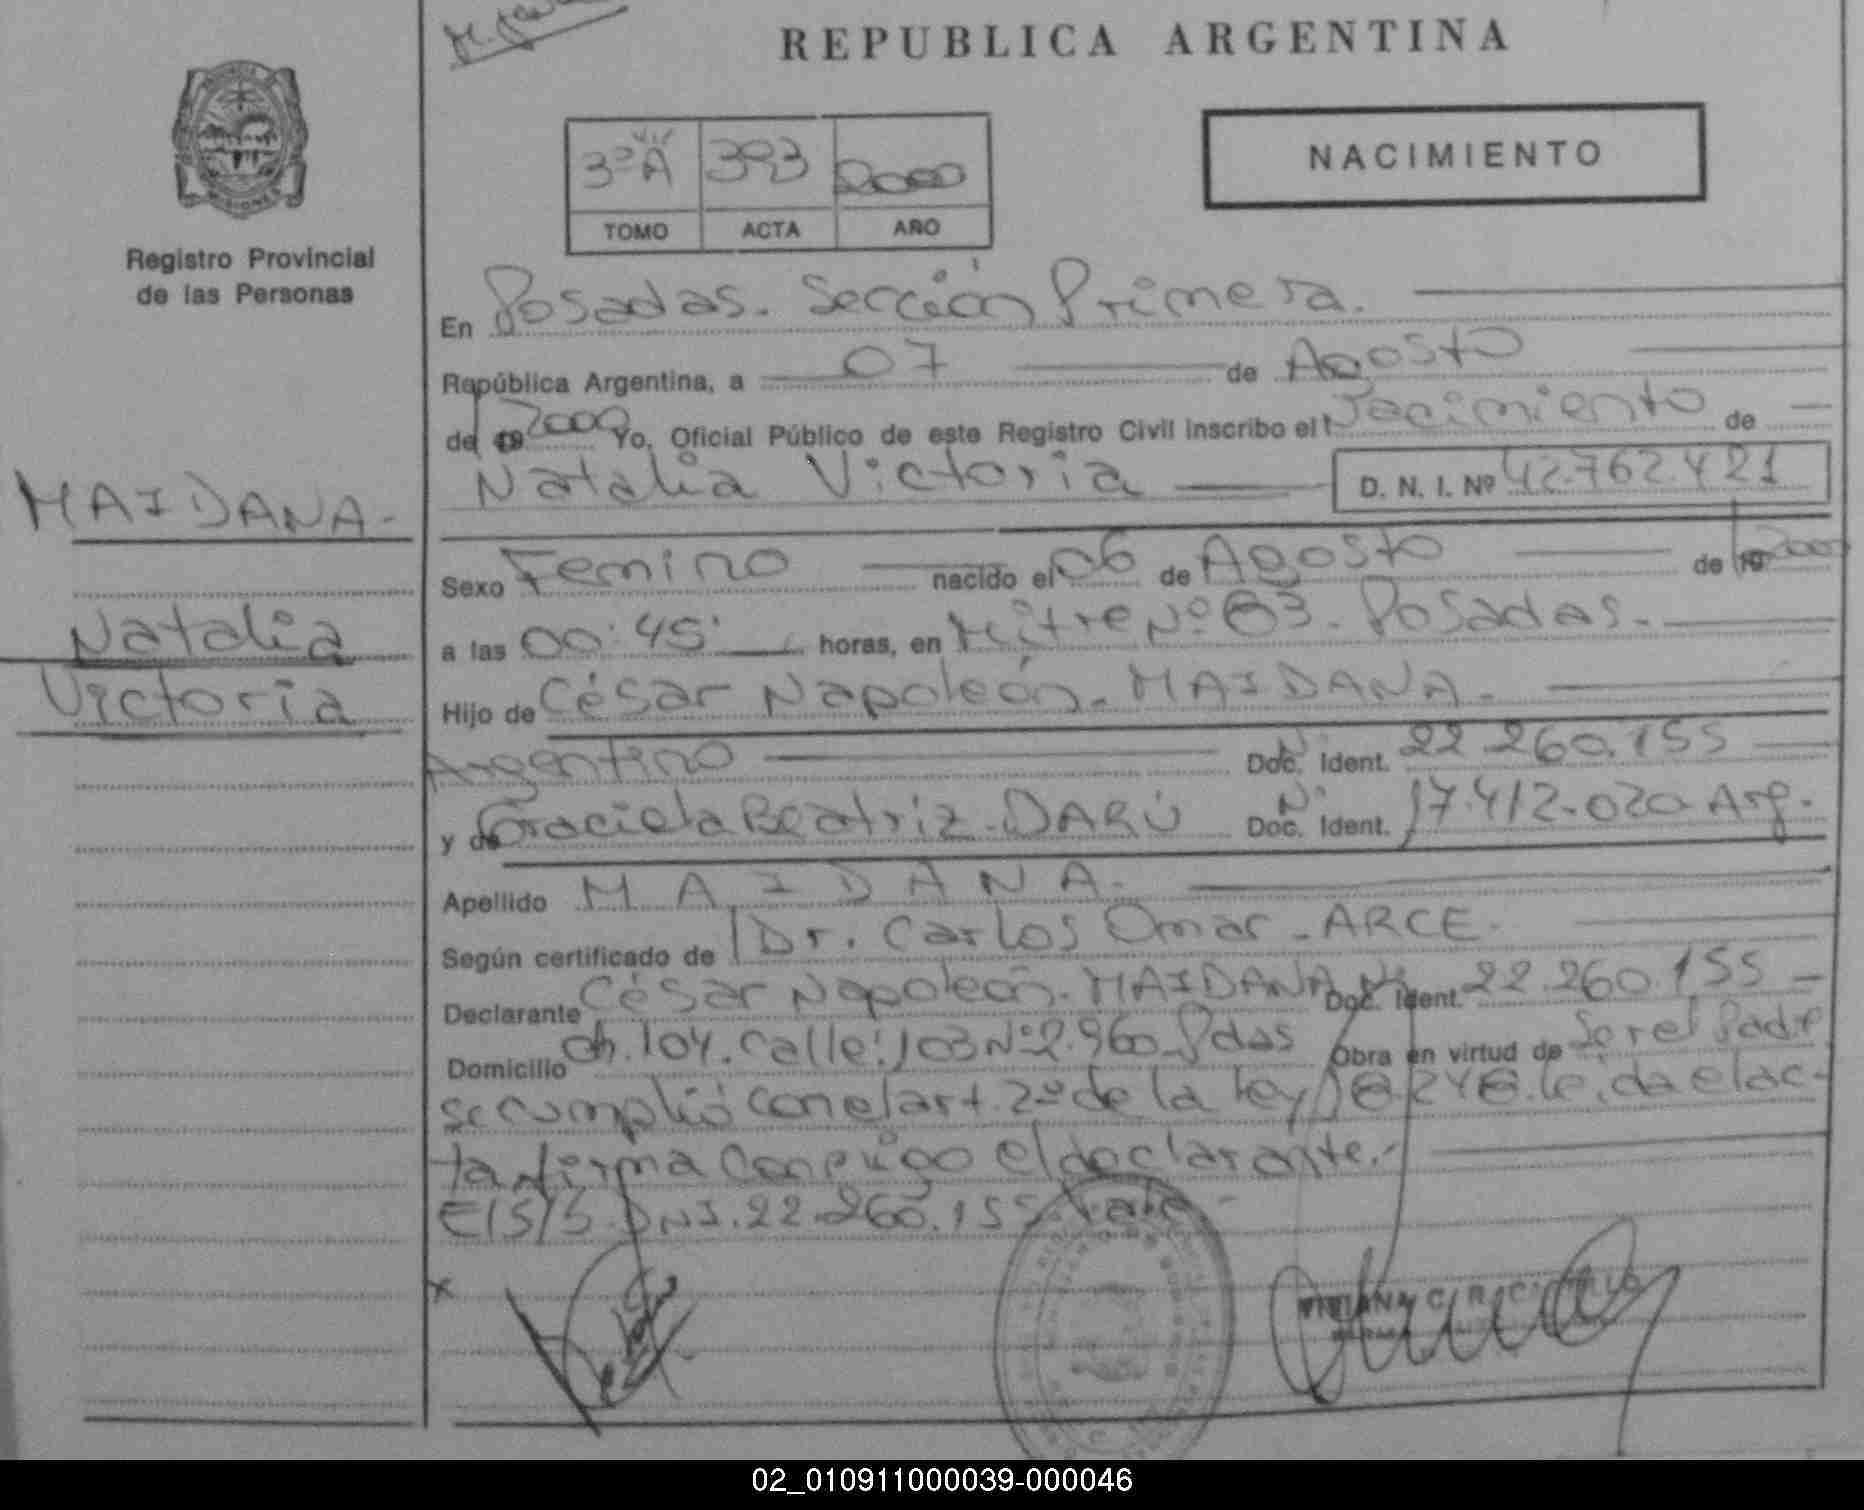 REPUBLICA ARGENTINA
NACIMIENTO
3º A 393 2000
TOMO ACTA AÑO
Registro Provincial
de las Personas
En Posadas. Sección Primera.
República Argentina, a 07 de Agosto
de 19 2000 Yo, Oficial Público de este Registro Civil inscribo el Nacimiento de
Natalia Victoria D. N. I. Nº 42.762.421
MAIDANA-
Natalia
Victoria
Sexo Femino nacido el 06 de Agosto de 19 2000
a las 00:45' horas, en Mitre Nº 83. Posadas.
Hijo de César Napoleón. MAIDANA.
Argentino Nº Doc. Ident. 22.260.155
y de Graciela Beatriz. DARÚ Nº Doc. Ident. 17.412.020 Arg.
Apellido MAIDANA.
Según certificado de Dr. Carlos Omar. ARCE.
Declarante César Napoleón. MAIDANA Nº Doc. Ident. 22.260.155
Domicilio ch. 104. calle: 103 Nº 2.960 Pdas Obra en virtud de Ser el Padre
se cumplió con el art. 2º de la ley 18.248. leída el ac-
ta firma conmigo el declarante.-
E/S/S. DNI. 22.260.155 Vale-
x
VIVIANA C.
02_010911000039-000046